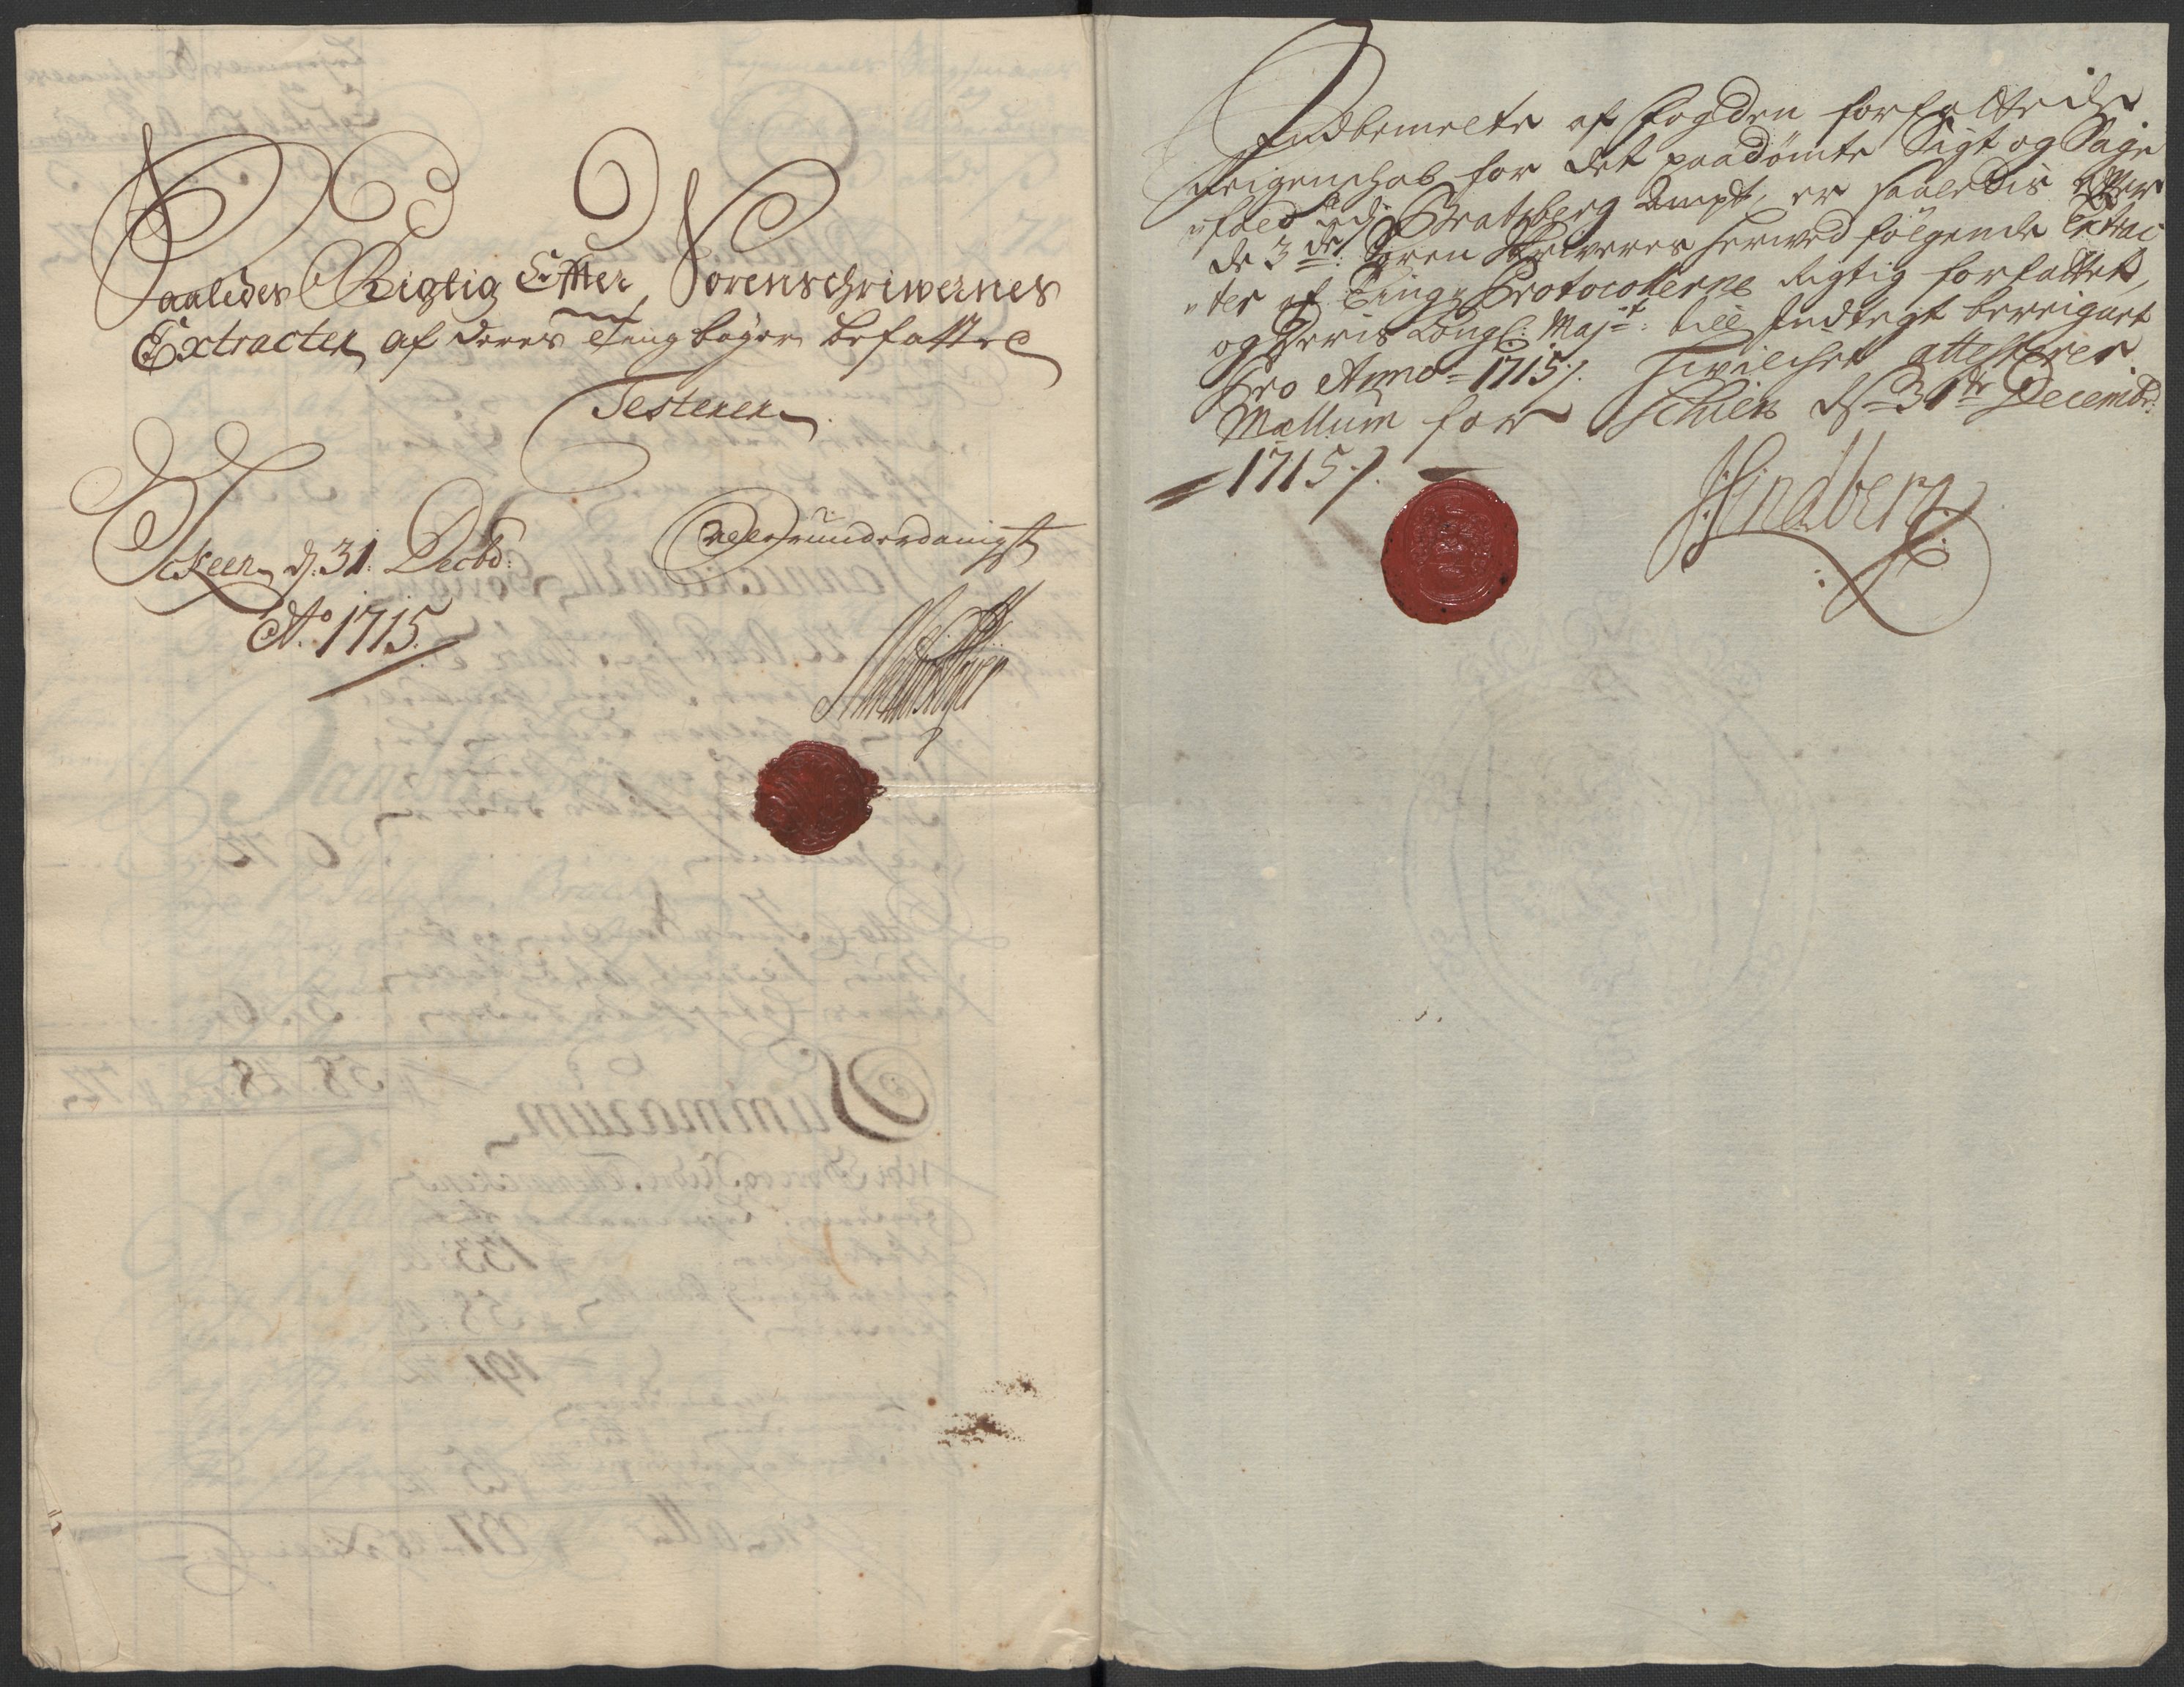 Saaledes Rigtig Effter Sorenschriwernes
Extracter af deres Ting bøger befattet
Testerer
Skeen d. 31. Decbr:
Ao. 1715.
allerunderdanigst
Indbemelte af Fogden forfattede
Reigenschab for det paadømte Sigt og Sage
fald udj Bratsberg Ampt, er saaledis effter
de 3de: Soren Skriveres herved følgende Extrac
ter af Tings Protocollerne rigtig forfattet,
og Deris Kongl: Majts: till Indtegt bereignet
pro Anno 1715 /. Hvilchet attesterer
Mællum for Schien ds 31te Decembr:
1715 /.
Hindberg